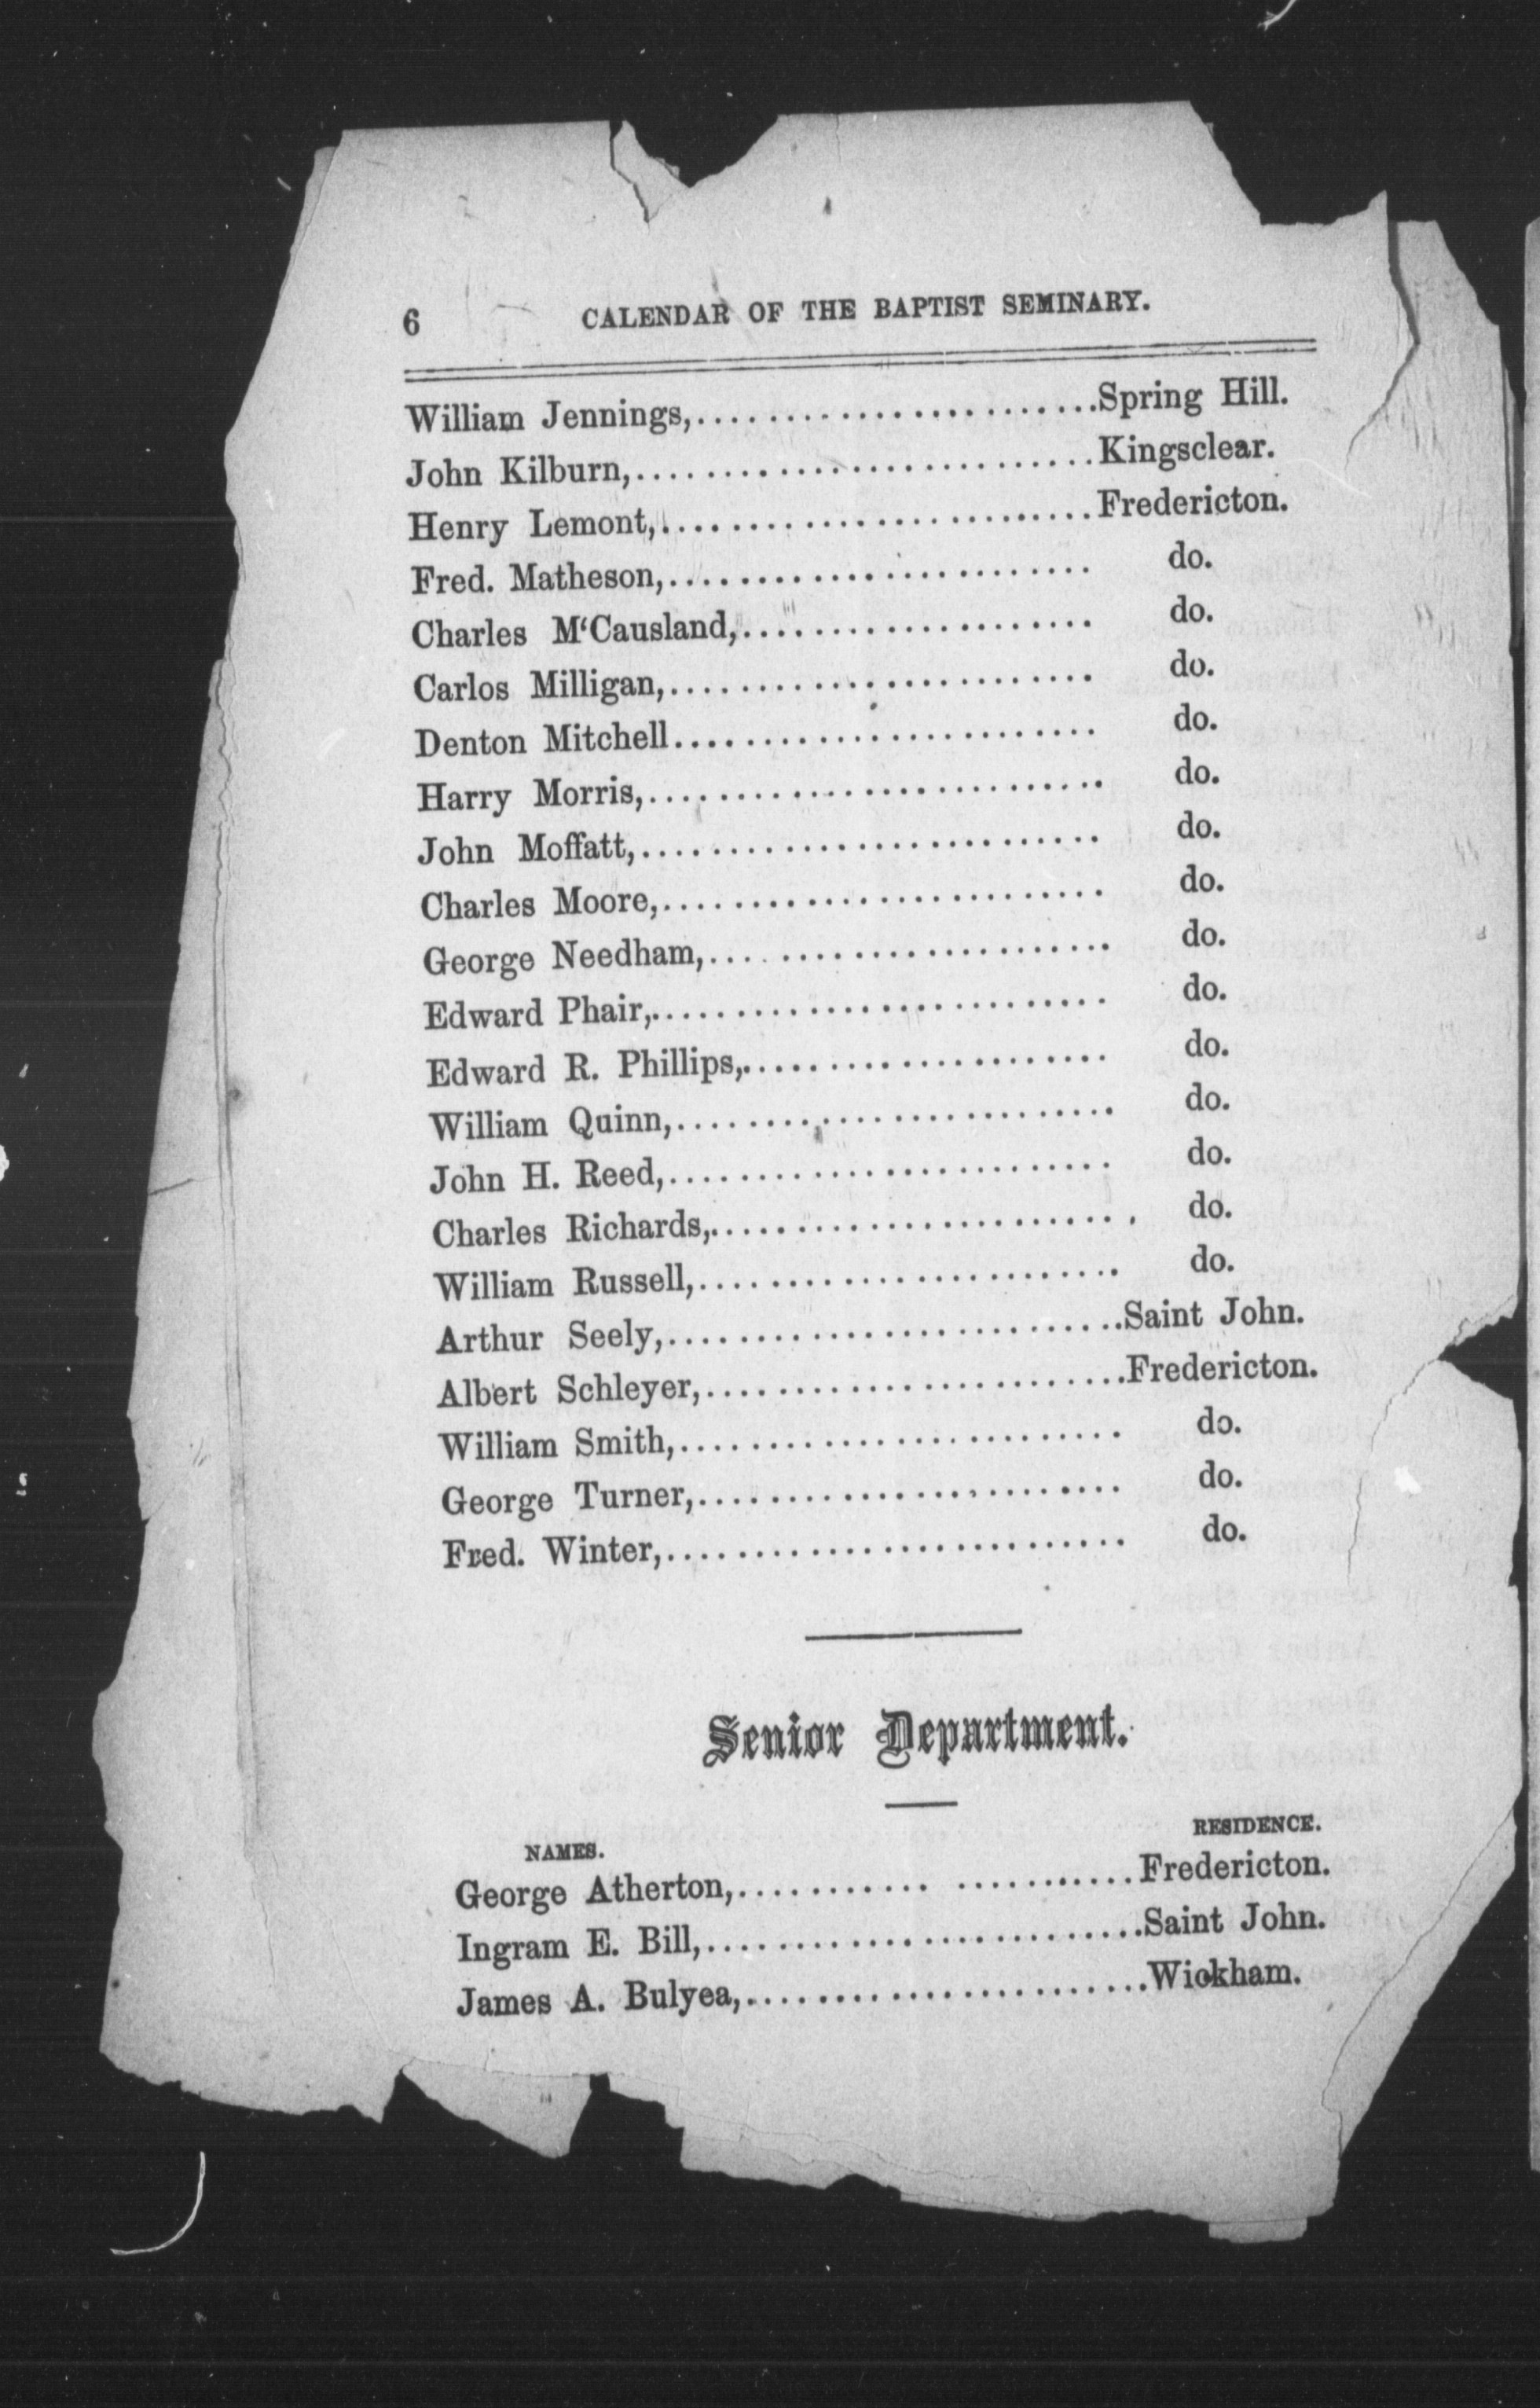 6 CALENDAR OF THE BAPTIST SEMINARY.
William Jennings,........................Spring Hill.
John Kilburn,...........................Kingsclear.
Henry Lemont,.........................Fredericton.
Fred. Matheson,........................ do.
Charles M'Causland,.................... do.
Carlos Milligan,........................ do.
Denton Mitchell........................ do.
Harry Morris,.......................... do.
John Moffatt,.......................... do.
Charles Moore,......................... do.
George Needham,....................... do.
Edward Phair,.......................... do.
Edward R. Phillips,..................... do.
William Quinn,......................... do.
John H. Reed,.......................... do.
Charles Richards,........................ do.
William Russell,........................ do.
Arthur Seely,..........................Saint John.
Albert Schleyer,........................Fredericton.
William Smith,......................... do.
George Turner,........................ do.
Fred. Winter,.......................... do.
Senior Department.
NAMES. RESIDENCE.
George Atherton,........... ..........Fredericton.
Ingram E. Bill,.........................Saint John.
James A. Bulyea,.......................Wickham.